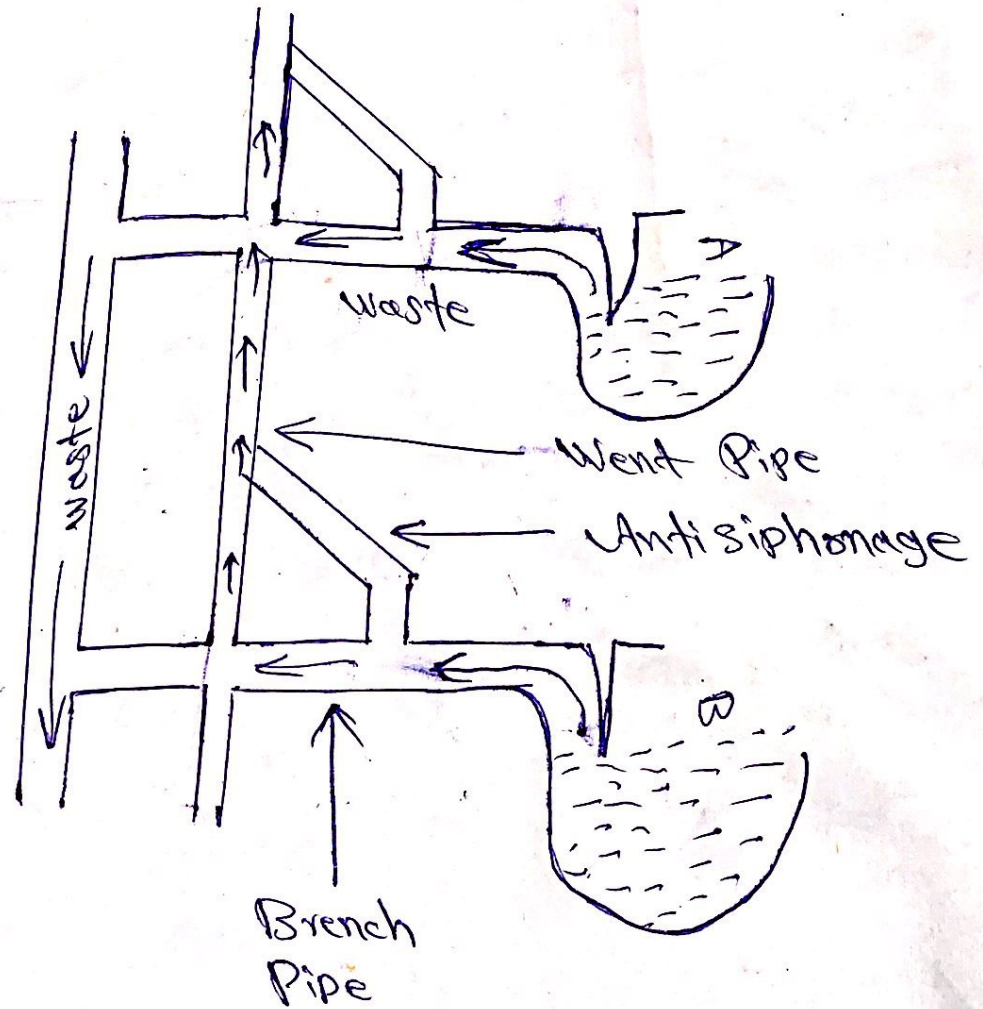 A
waste
waste
Went Pipe
Antisiphonage
B
Brench
Pipe